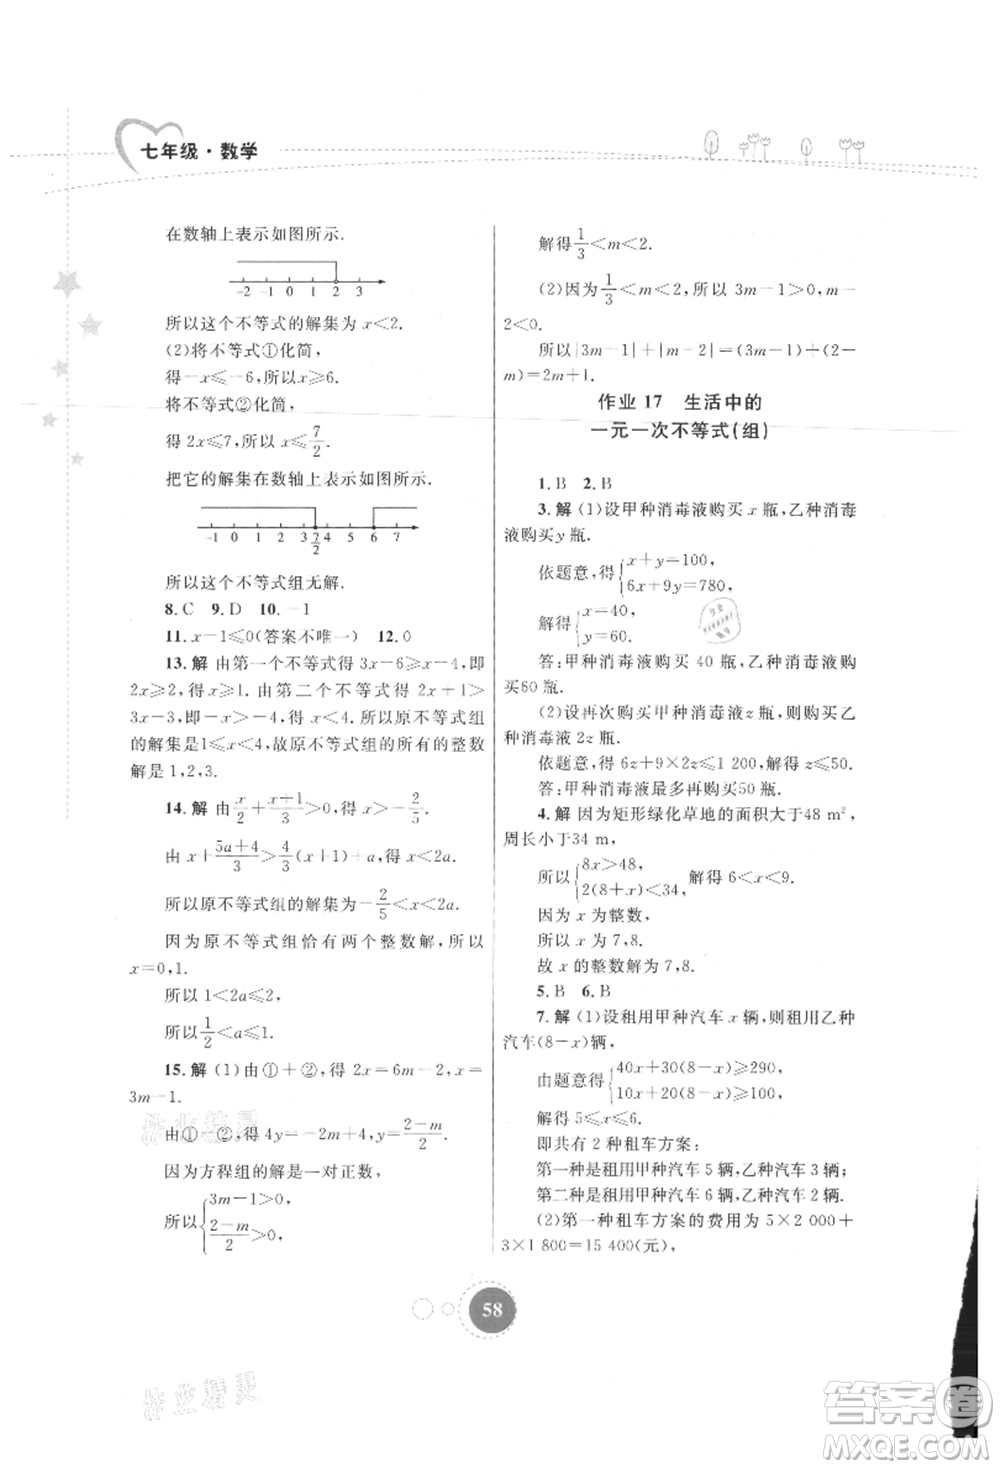 七年级·数学
在数轴上表示如图所示.
-2 -1 0 1 2 3
所以这个不等式的解集为 x<2.
(2)将不等式①化简,
得-x≤-6,所以x≥6.
将不等式②化简,
得 2x≤7,所以 x≤7/2.
把它的解集在数轴上表示如图所示.
-1 0 1 2 3 7/2 4 5 6 7
所以这个不等式组无解.
8.C 9.D 10.-1
11.x-1≤0(答案不唯一) 12.0
13.解 由第一个不等式得 3x-6≥x-4,即
2x≥2,所以 x≥1.由第二个不等式得 2x+1>
3x-3,即-x>-4,得 x<4.所以原不等式组
的解集是1≤x<4,故原不等式组的所有的整数
解是 1,2,3.
14.解 由x/2+(x+1)/3>0,得 x>-2/5.
由 x+(5a+4)/3>4/3(x+1)+a,得 x<2a.
所以原不等式组的解集为-2/5<x<2a.
因为原不等式组恰有两个整数解,所以
x=0,1.
所以 1<2a≤2,
所以1/2<a≤1.
15.解 (1)由①+②,得 2x=6m-2,x=
3m-1.
由①-②,得 4y=-2m+4,y=(2-m)/2.
因为方程组的解是一对正数,
所以{3m-1>0,
(2-m)/2>0,
解得1/3<m<2.
(2)因为1/3<m<2,所以 3m-1>0,m-
2<0.
所以|3m-1|+|m-2|=(3m-1)+(2-
m)=2m+1.
作业 17 生活中的
一元一次不等式(组)
1.B 2.B
3.解 (1)设甲种消毒液购买 x 瓶,乙种消毒
液购买y 瓶.
依题意,得{x+y=100,
6x+9y=780,
解得{x=40,
y=60.
答:甲种消毒液购买 40 瓶,乙种消毒液购
买60 瓶.
(2)设再次购买甲种消毒液z 瓶,则购买乙
种消毒液 2z 瓶.
依题意,得 6z+9×2z≤1 200,解得 z≤50.
答:甲种消毒液最多再购买50 瓶.
4.解 因为矩形绿化草地的面积大于48 m²,
周长小于34 m,
所以{8x>48,
2(8+x)<34,解得 6<x<9.
因为 x 为整数,
所以 x=7,8.
故 x 的整数解为 7,8.
5.B 6.B
7.解 (1)设租用甲种汽车 x 辆,则租用乙种
汽车(8-x)辆,
由题意得{40x+30(8-x)≥290,
10x+20(8-x)≥100,
解得 5≤x≤6.
即共有 2 种租车方案:
第一种是租用甲种汽车 5 辆,乙种汽车 3 辆;
第二种是租用甲种汽车 6 辆,乙种汽车 2 辆.
(2)第一种租车方案的费用为 5×2 000+
3×1 800=15 400(元),
58
作业精灵
作业精灵
答案卷
MXQE.COM